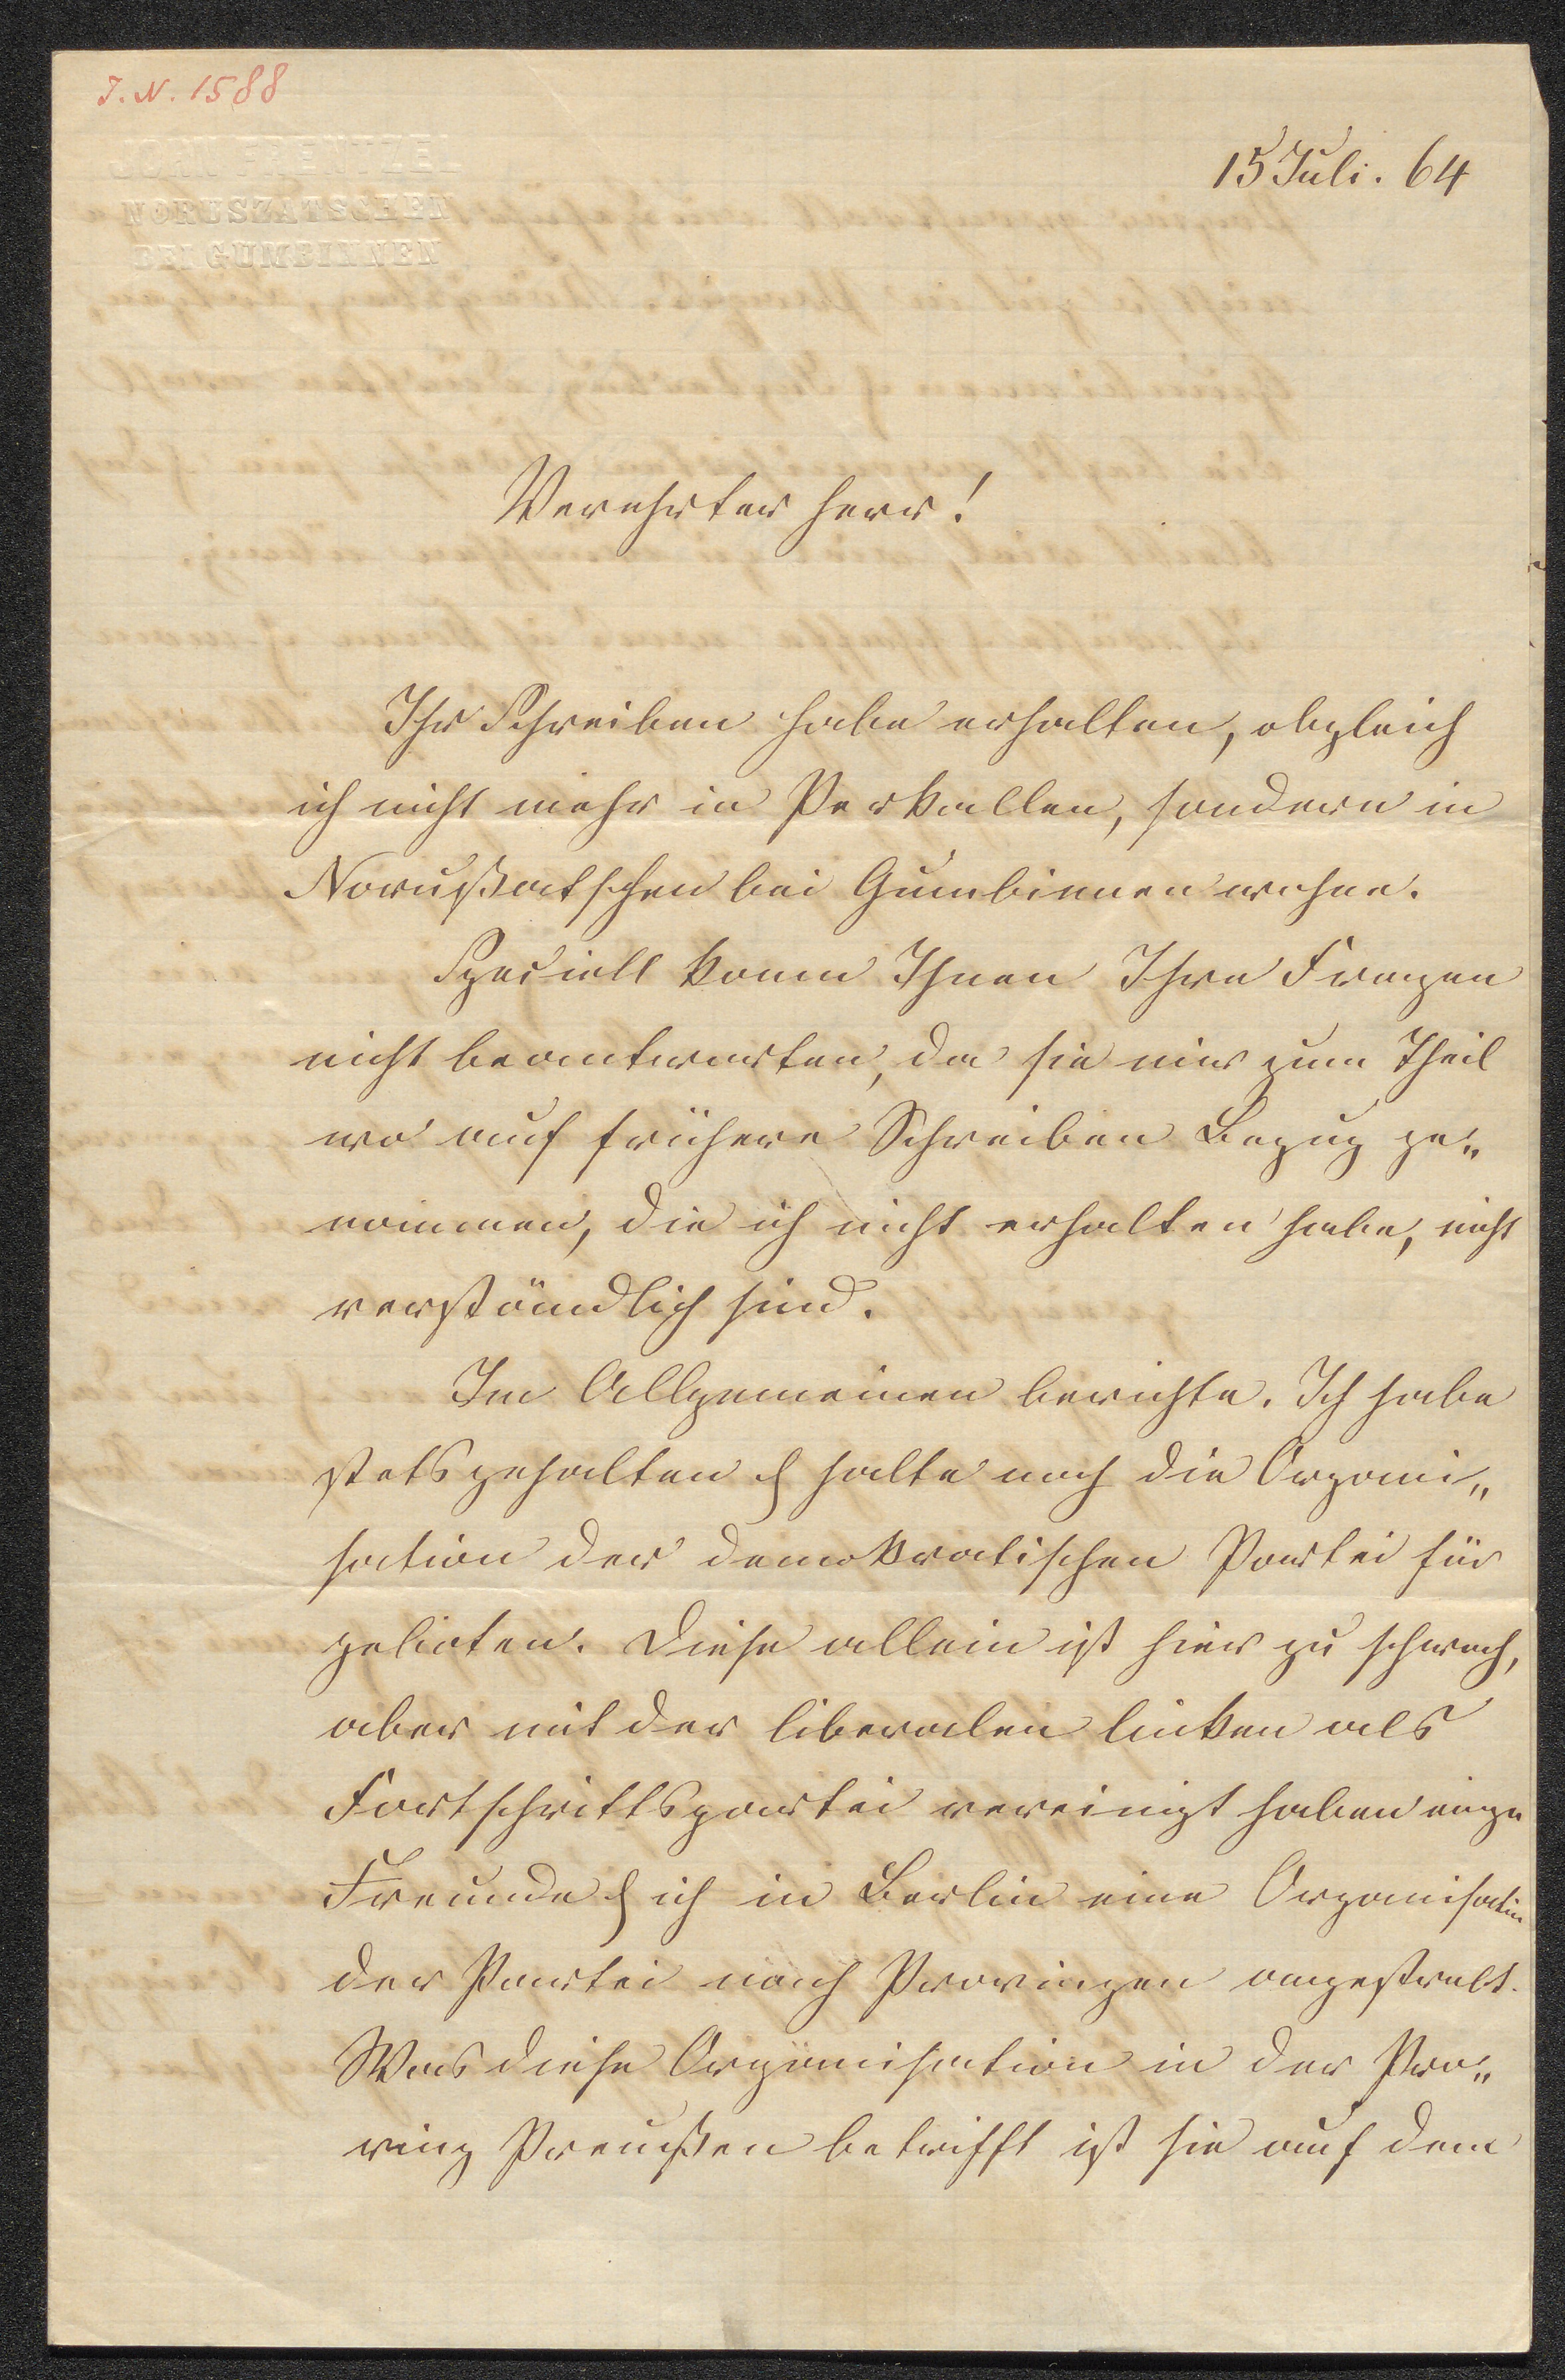 J. N. 1588
JOHN FRENTZEL
NORUSZATSCHEN
BEI GUMBINNEN
15 Juli. 64
Verehrter Herr!
Ihr Schreiben habe erhalten, obgleich
ich nicht mehr in Perkallen, sondern in
Norußatschen bei Gumbinnen wohne.
Speciell kann Ihnen Ihre Fragen
nicht beantworten, da sie mir zum Theil
wo auf frühere Schreiben Bezug ge„
nommen, die ich nicht erhalten habe, nicht
verständlich sind.
Im Allgemeinen berichte. Ich habe
stets gehalten & halte noch die Organi„
sation der demokratischen Partei für
geboten. Diese allein ist hier zu schwach,
aber mit der liberalen linken als
Fortschrittspartei vereinigt haben einge
Freunde & ich in Berlin eine Organisation
der Partei nach Provinzen angestrebt.
Was diese Organisation in der Pro„
vinz Preußen betrifft ist sie auf dem